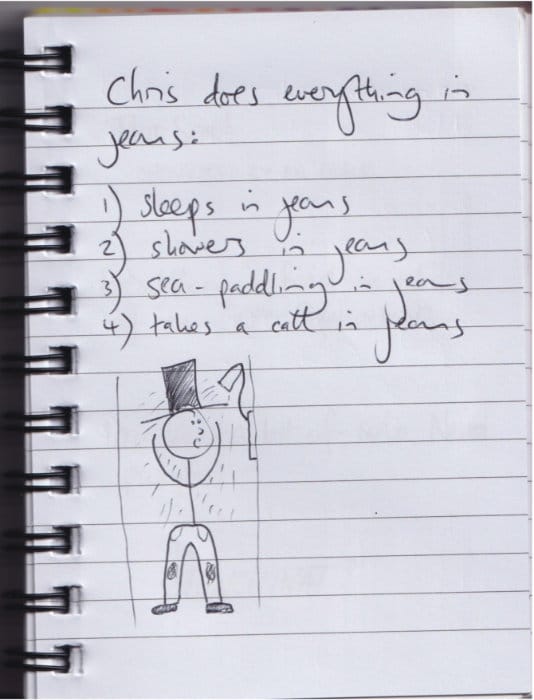 Chris does everything in
jeans:
1) sleeps in jeans
2) showers in jeans
3) sea-paddling in jeans
4) takes a call in jeans